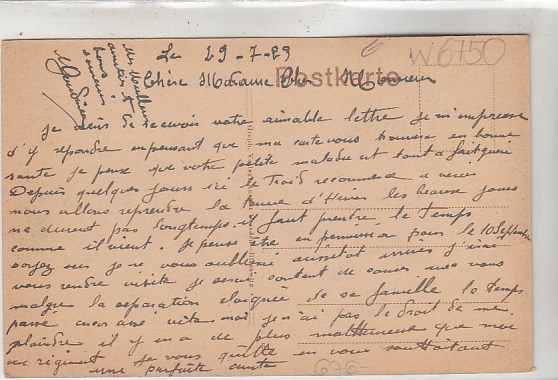 Le 29-7-29
W6150
Postkarte
Chère Madame Cher Monsieur
Je viens de recevoir votre aimable lettre Je m'empresse
d'y repondre en pensant que ma carte vous trouvera en bonne
sante je pense que votre petite malade est tout a fait guéri
Depuis quelques jours ici le froid recommence a venir
nous allons reprendre la tenue d'Hiver les beaux jours
ne durent pas longtemps. il faut prendre le Temps
comme il vient. Je pense être en permission pour le 10 Septembre
soyez sur je ne vous oublierai aussitot arrivé j'irai
vous rendre visite je serai content de causer avec vous
malgre la separation eloignée de sa famille le Temps
passe encore vite moi je n'ai pas le droit de me
plaindre il y en a de plus malheureux que moi
au regiment Je vous quitte en vous souhaitant
une parfaite santé
Mes Meilleurs
amitiés et
bons
souvenirs
676-